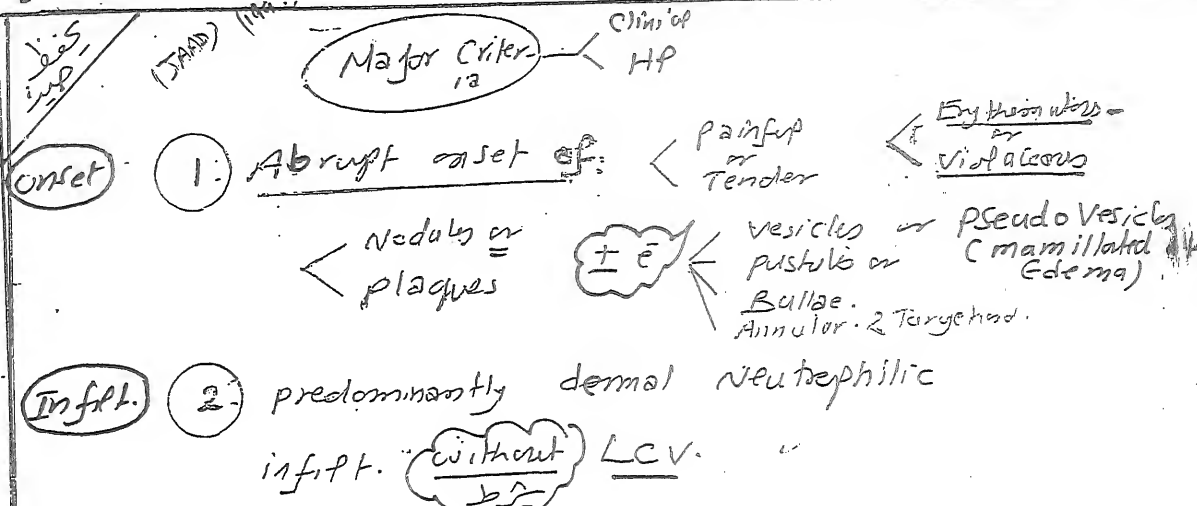 (JAAD)
Major Criter-
ia
Clinical
HP
onset
1. Abrupt onset of:
painful
or
Tender
Erythematous -
or
violaceous
Nodules or
plaques
± ē
vesicles or pseudo Vesicles
pustules or (mamillated
Edema)
Bullae.
Annular. 2 Targetoid.
Infilt.
2. predominantly dermal Neutrophilic
infilt. without LCV.